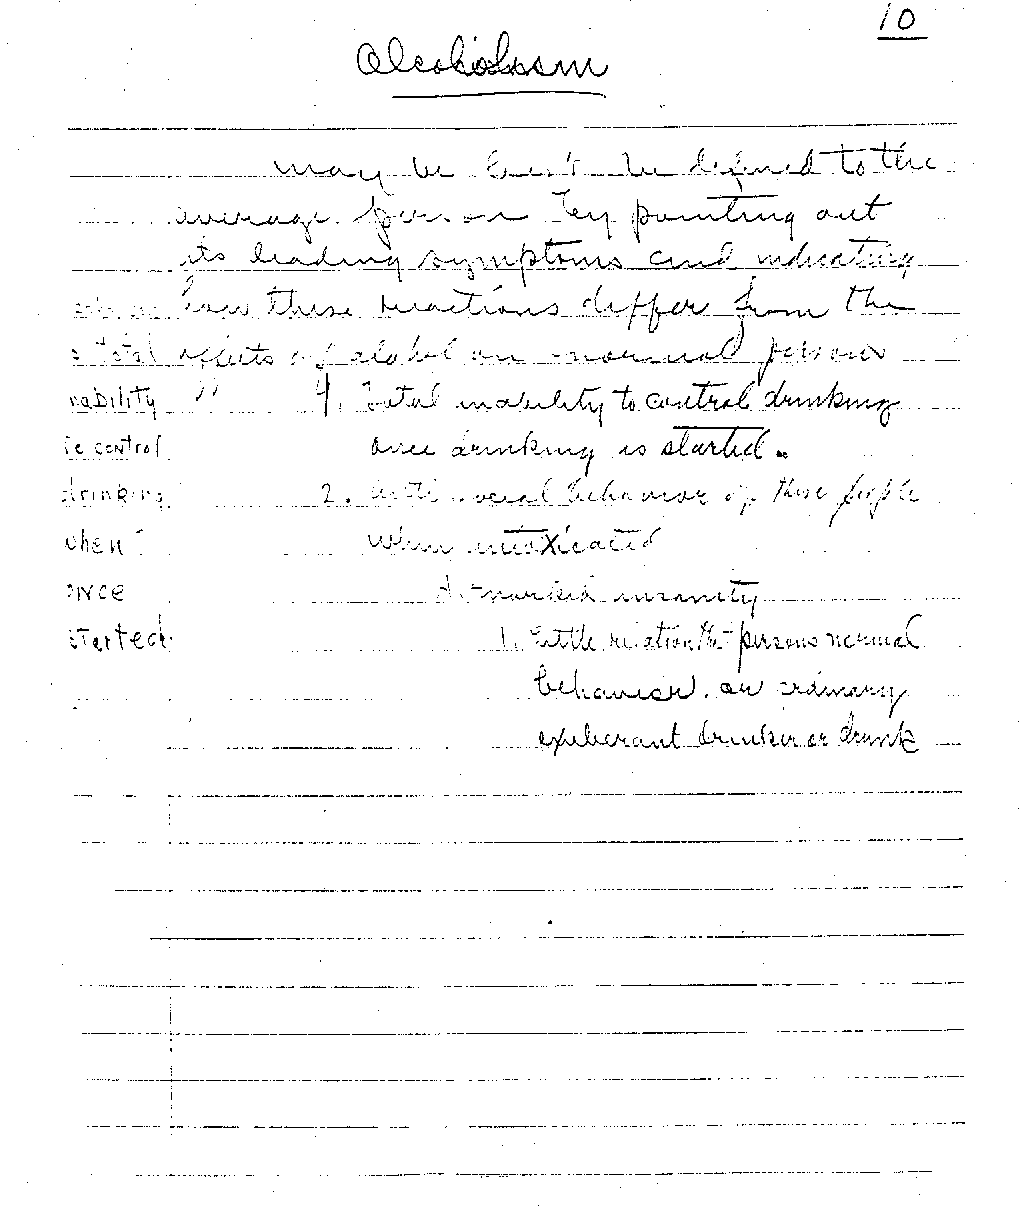 10
Alcoholism
may be best be defined to the
average person by pointing out
its leading symptoms and indicating
how these reactions differ from the
total effects of alcohol on normal persons
nability " 1. Total inability to control drinking
control once drinking is started.
drinking 2. social behavior of these people
when when intoxicated
once A. marked insanity
started 1. Little relation persons normal
behavior. or ordinary
exuberant drinker or drunk